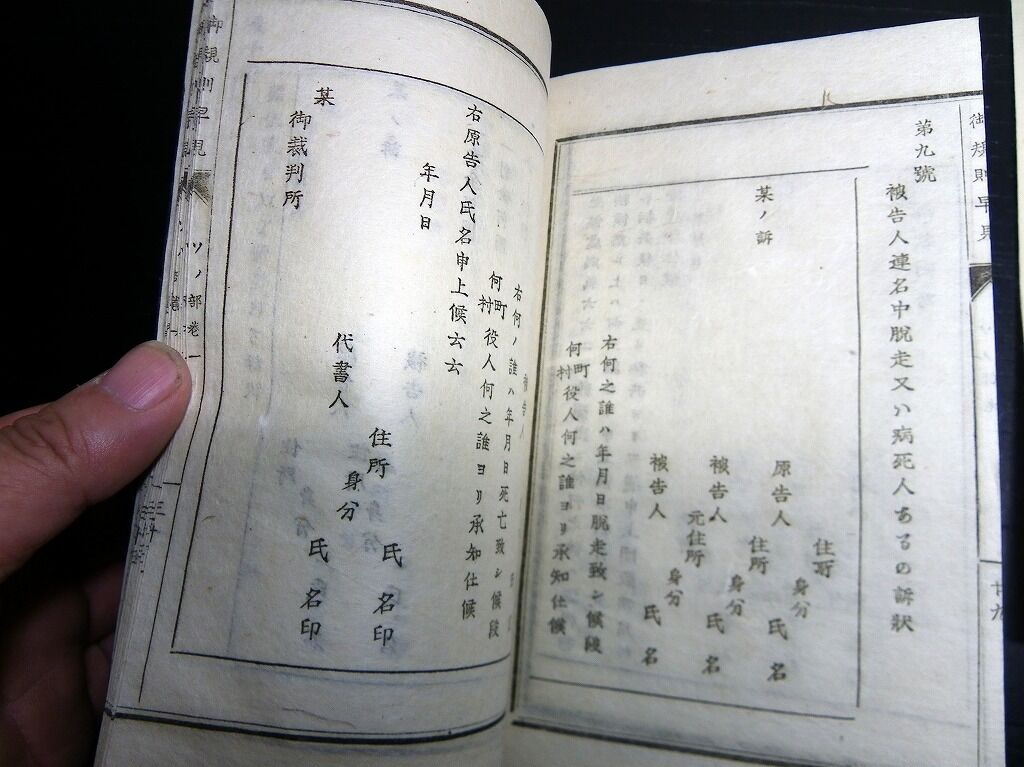 第九號
被告人連名中脱走又ハ病死人あるの訴状
某ノ訴
住所
身分
原告人
氏名
住所
身分
被告人
氏名
元住所
身分
被告人
氏名
右何之誰ハ年月日脱走致シ候段
何町村役人何之誰ヨリ承知仕候
被告人
右何ノ誰ハ年月日死亡致シ候段
何町村役人何之誰ヨリ承知仕候
右原告人氏名申上候云云
年月日
住所
身分
氏名印
代書人
氏名印
某
御裁判所
御規則早見
ツノ部巻一
御規則早見
廿九